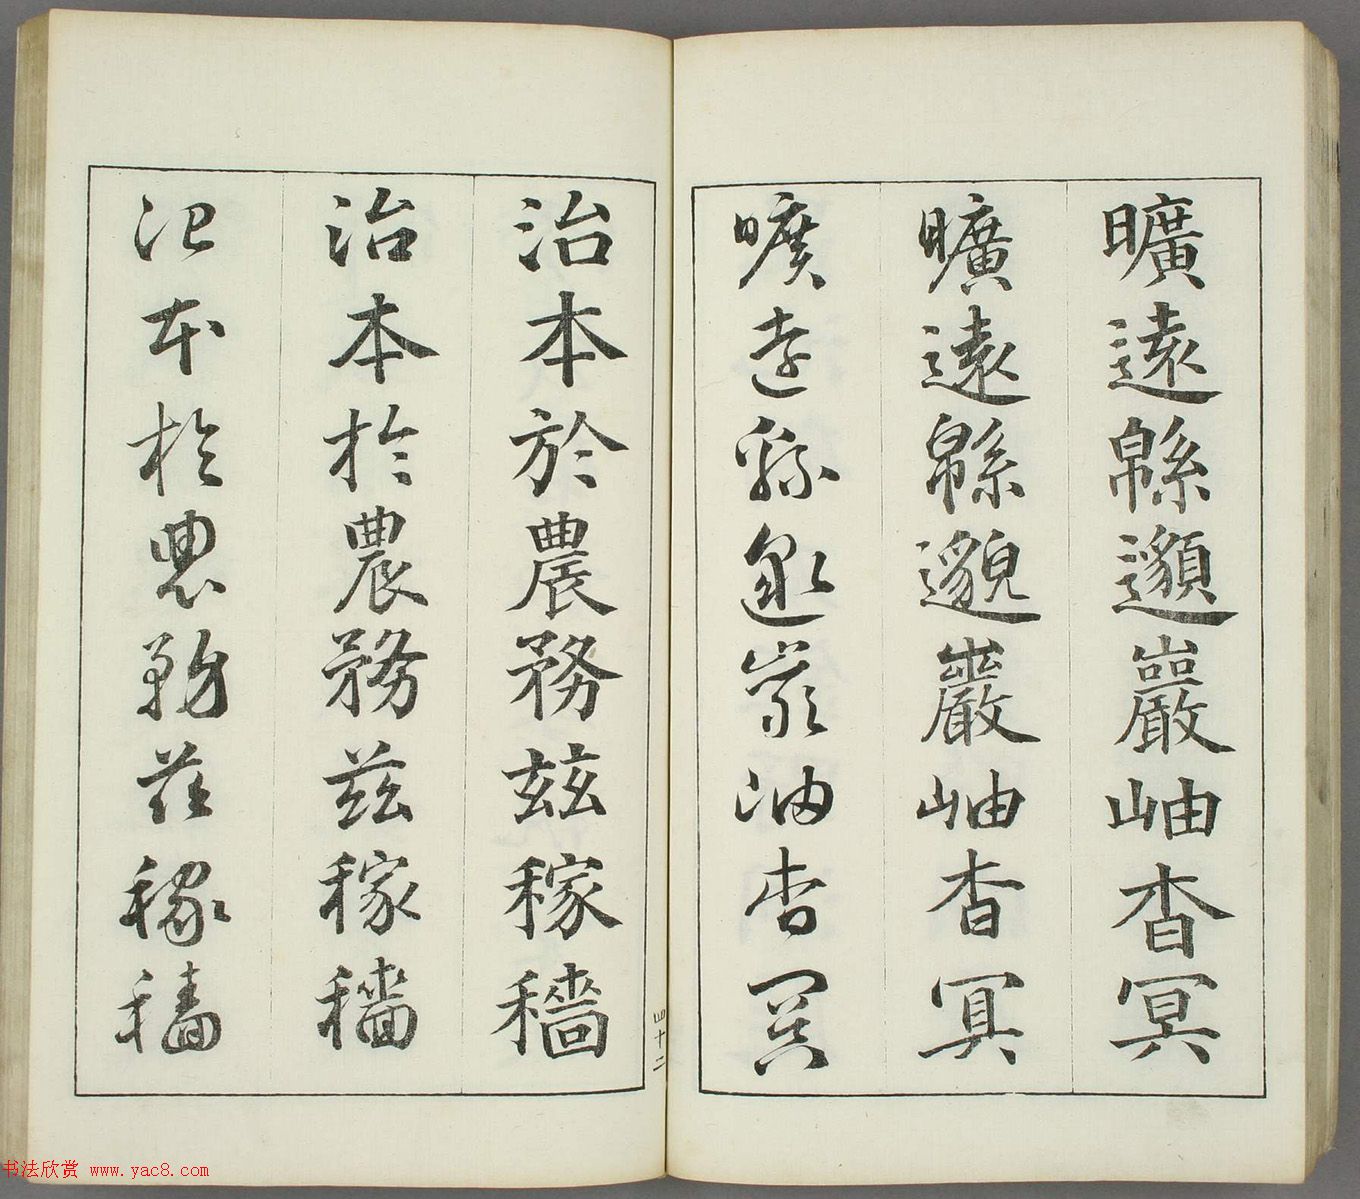 曠遠緜邈巖岫杳冥
曠遠緜邈巖岫杳冥
曠遠緜邈巖岫杳冥
四十二
治本於農務茲稼穡
治本於農務茲稼穡
治本於農務茲稼穡
书法欣赏 www.yac8.com